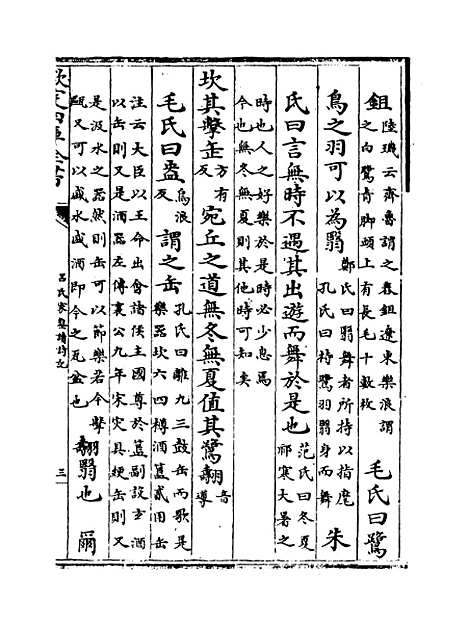 鉏陸璣云齊魯謂之舂鉏遼東樂浪謂之白鷺青脚頭上有長毛十數枚毛氏曰鷺
鳥之羽可以為翳鄭氏曰翳舞者所持以指麾孔氏曰持鷺羽翳身而舞朱
氏曰言無時不遇其出遊而舞於是也范氏曰冬夏祁寒大暑之
時也人之好樂於是時必少息焉今也無冬無夏則其他時可知矣
坎其擊缶方有反宛丘之道無冬無夏值其鷺翿音導
毛氏曰盎烏浪反謂之缶孔氏曰離九三鼓缶而歌是樂器坎六四樽酒簋貳用缶
注云大臣以王命出會諸侯主國尊於簋副設玄酒以缶則又是酒器左傳襄公九年宋災具綆缶則又
是汲水之器然則缶可以節樂若今擊甌又可以盛水盛酒即今之瓦盆也翿翳也爾
欽定四庫全書
呂氏家塾讀詩記
三